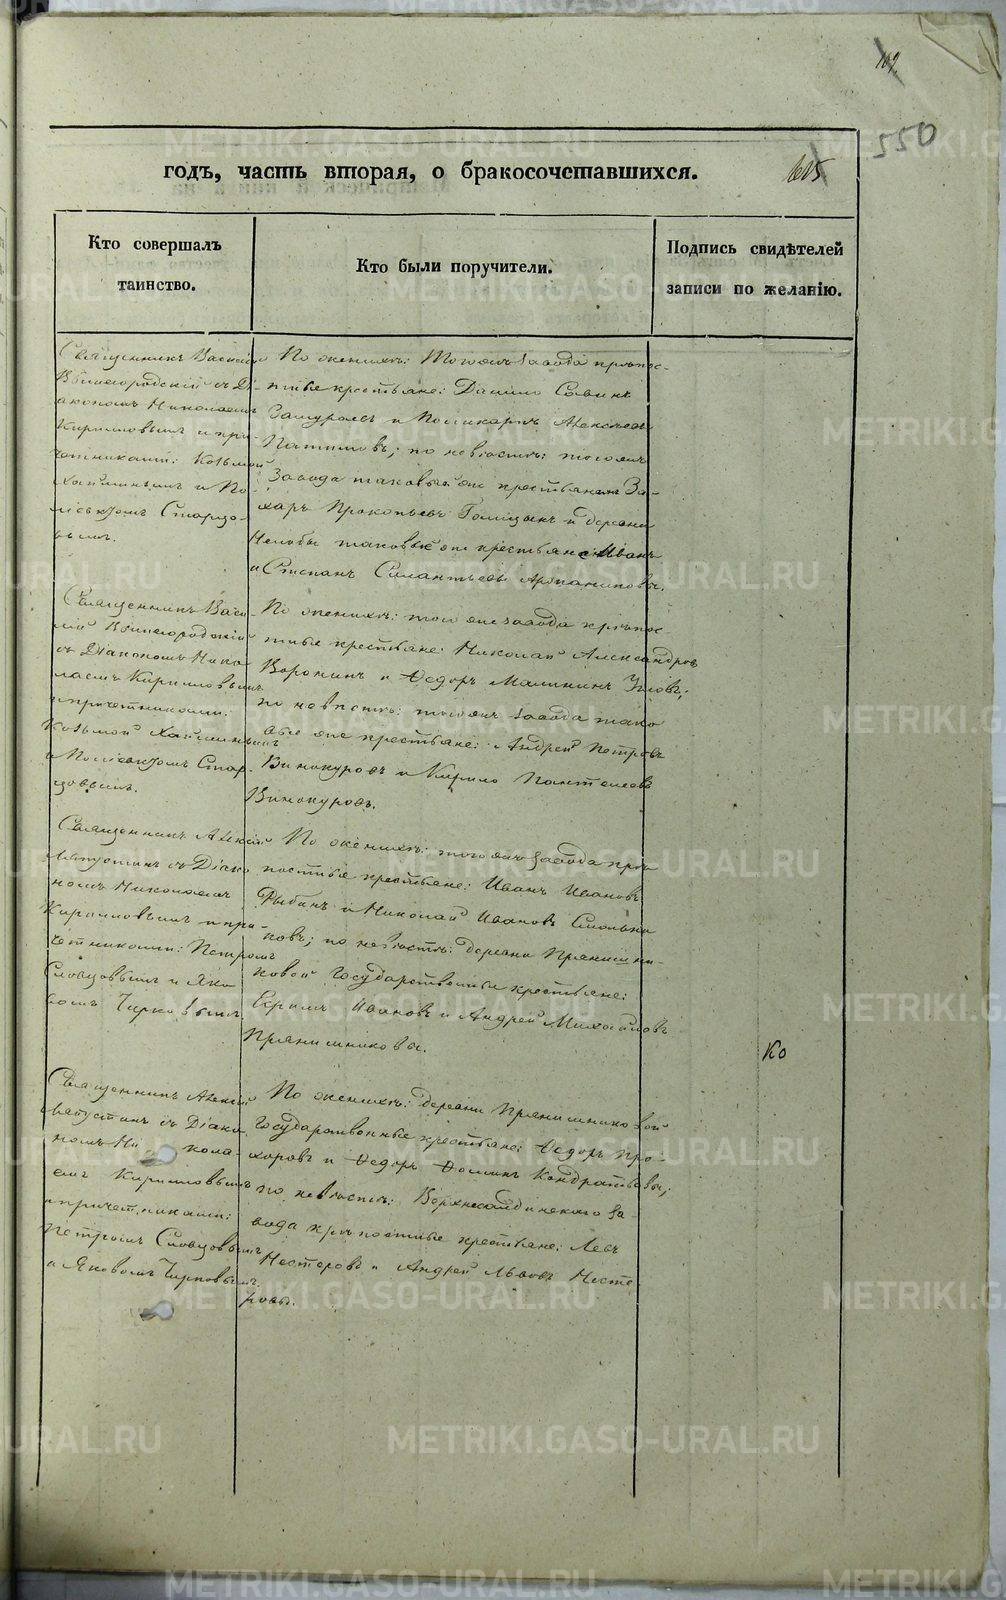 109.
550
615
годъ, часть вторая, о бракосочетавшихся.
Кто совершалъ
таинство.
Кто были поручители.
Подпись свидѣтелей
записи по желанію.
Священникъ Василій
Вышегородскій съ Ді-
акономъ Николаемъ
Кирилловымъ и при-
четниками: Козьмой
и По-
ліевктомъ Старцо-
вымъ.
По женихѣ: тогожъ завода крѣпос-
тные крестьяне: Данило Савинъ
и Поликарпъ Алексѣевъ
по невѣстѣ: тогожъ
Завода таковые же крестьяне За-
харъ Прокопьевъ Голицынъ и деревни
таковые же крестьяне Иванъ
и Степанъ Силантьевы
Священникъ Васи-
лій Вышегородскій
съ Діакономъ Нико-
лаемъ Кирилловымъ
и причетниками:
Козьмой
и Поліевктомъ Стар-
цовымъ.
По женихѣ: того же завода крѣпос-
тные крестьяне: Николай Александровъ
Воронинъ и Ѳедоръ
по невѣстѣ: тогожъ завода тако
вые же крестьяне: Андрей Петровъ
Винокуровъ и Кирило Пантелеевъ
Винокуровъ.
Священникъ Алексѣй
съ Діако
номъ Николаемъ
Кирилловымъ и при
четниками: Петромъ
Словцовымъ и Яко
вомъ Чирковымъ.
По женихѣ: тогожъ завода крѣ
постные крестьяне: Иванъ Ивановъ
Рыбинъ и Николай Ивановъ Смольни
ковъ; по невѣстѣ: деревни Прянишни-
ковой Государственные крестьяне:
Ефимъ Ивановъ и Андрей Михайловъ
Прянишниковы.
Ко
Священникъ Алексѣй
съ Діако
номъ Ни кола-
емъ Кирилловымъ
и причетниками:
Петромъ Словцовымъ
и Яковомъ Чирковымъ.
По женихѣ: деревни Прянишниковой
Государственные крестьяне: Ѳедоръ Про-
хоровъ и Ѳедоръ Ѳоминъ Кондратьевы;
по невѣстѣ: За-
вода крѣпостные крестьяне: Левъ
Нестеровъ и Андрей Львовъ Несте
ровы.
METRIKI.GASO-URAL.RU